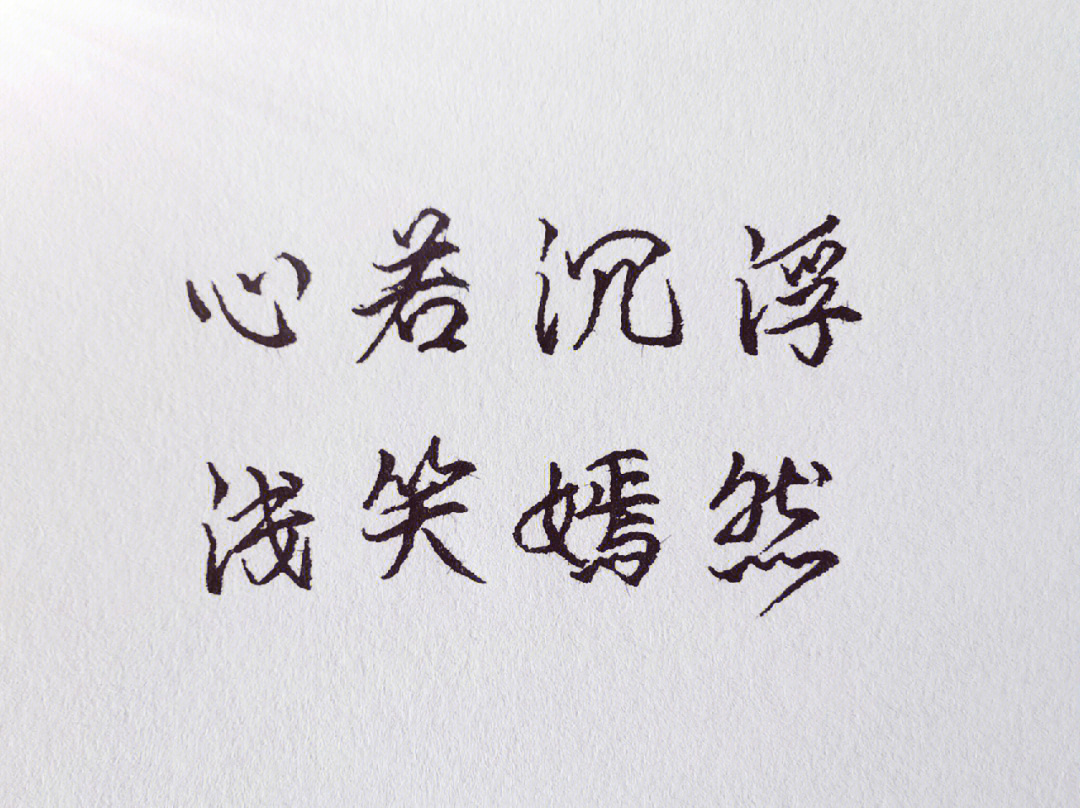 心若沉浮
浅笑嫣然